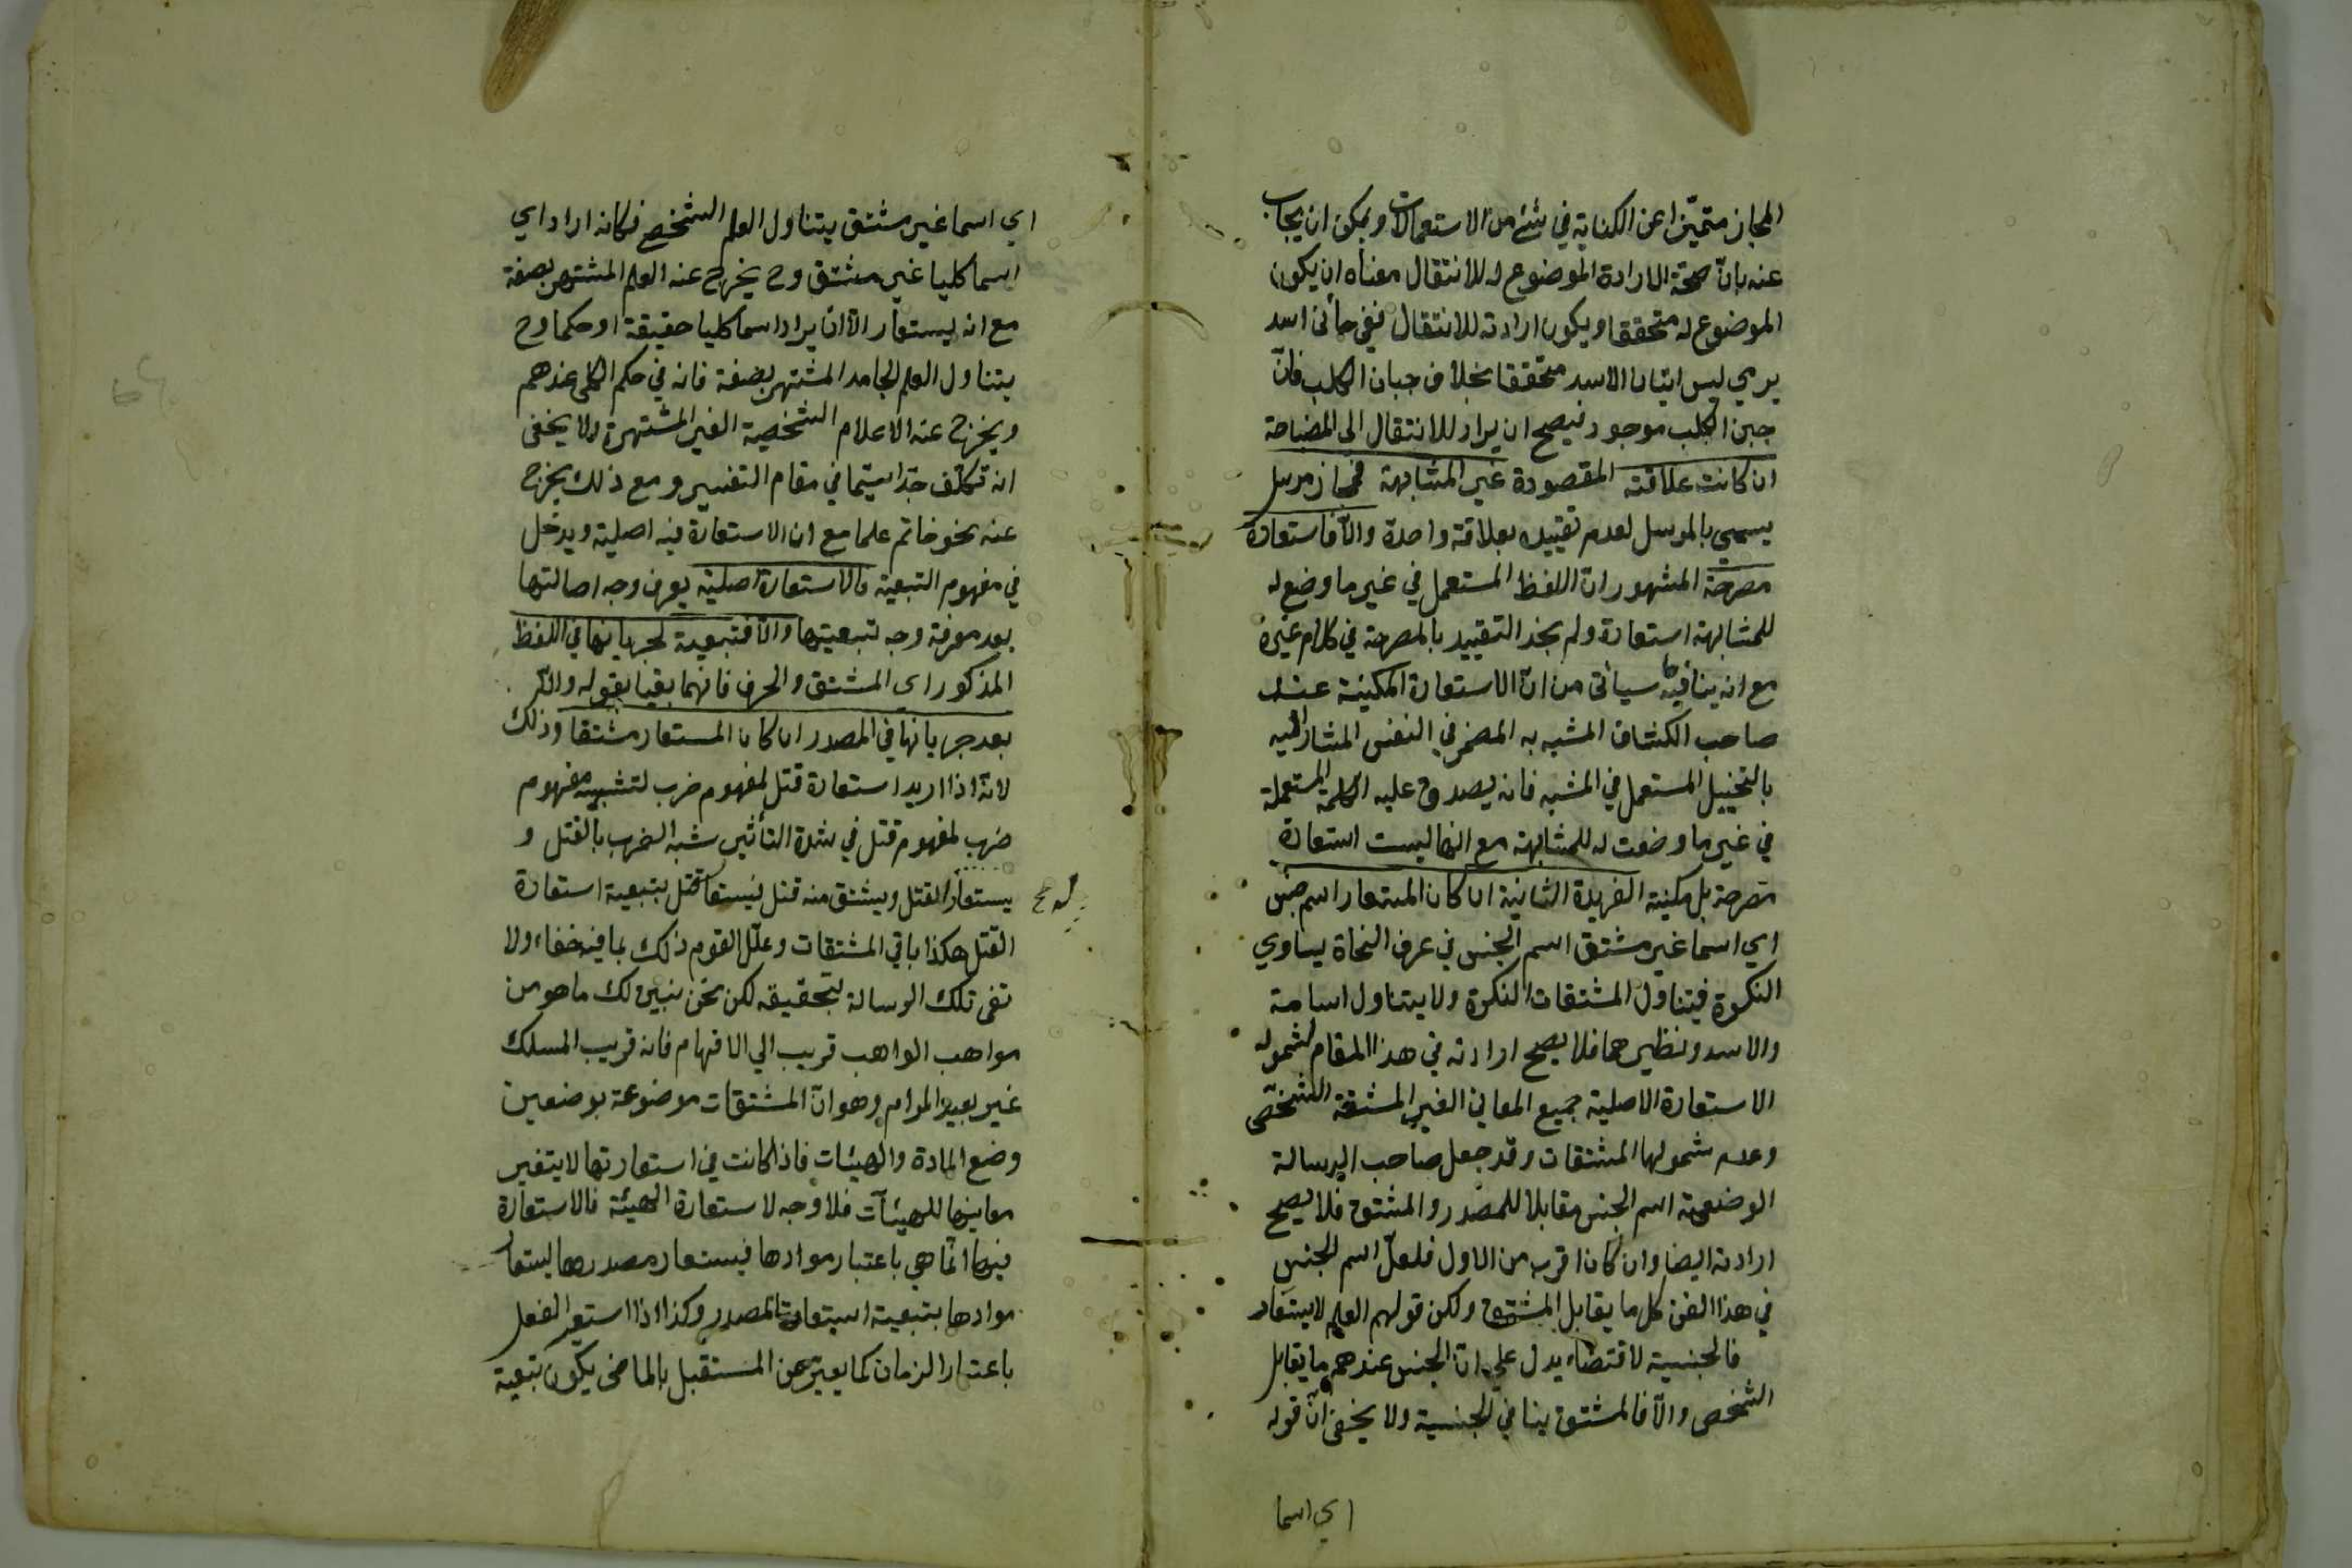 المجاز متميّزا عن الكناية في شئ من الاستعمالات ويمكن ان يجاب
عنه بانّ صحّة الارادة الموضوع له للانتقال معناه ان يكون
الموضوع له متحققا ويكون ارادته للانتقال ففي جائني اسد
يرمي ليس اتيان الاسد متحققا بخلاف جبان الكلب فانّ
جبن الكلب موجود فيصح ان يراد للانتقال الى المضيافة
ان كانت علاقته المقصودة غير المشابهة فمجاز مرسل
يسمى بالمرسل لعدم تقييده بعلاقة واحدة والّا فاستعارة
مصرحة المشهور انّ اللفظ المستعمل في غير ما وضع له
للمشابهة استعارة ولم نجد التقييد بالمصرحة في كلام غيره
مع انه ينافيه ما سيأتى من انّ الاستعارة المكنية عند
صاحب الكشاف المشبه به المضمر في النفس المشار اليه
بالتخييل المستعمل في المشبه فانه يصدق عليه الكلمة المستعملة
في غير ما وضعت له للمشابهة مع انها ليست استعارة
مصرحة بل مكنية الفريدة الثانية ان كان المستعار اسم جنس
اي اسما غير مشتق اسم الجنس في عرف النحاة يساوي
النكرة فيتناول المشتقات النكرة ولا يتناول اسامة
والاسد ونظيرهما فلا يصح ارادته في هذا المقام لشموله
الاستعارة الاصلية جميع المعاني الغير المشتقة الشخصى
وعدم شمولها المشتقات وقد جعل صاحب الرسالة
الوضعية اسم الجنس مقابلا للمصدر والمشتق فلا يصح
ارادته ايضا وان كان اقرب من الاول فلعلّ اسم الجنس
في هذا الفن كل ما يقابل المشتق ولكن قولهم العلم لا يستعار
فالجنسية لاقتضاء يدل على انّ الجنس عندهم ما يقابل
الشخص والّا فالمشتق ينافي الجنسية ولا يخفى انّ قوله
اي اسما
اي اسما غير مشتق يتناول العلم الشخص فكانه اراد اي
اسما كليا غير مشتق وح يخرج عنه العلم المشتهر بصفة
مع انه يستعار الّا ان يراد اسما كليا حقيقة او حكما وح
يتناول العلم الجامد المشتهر بصفة فانه في حكم الكلى عندهم
ويخرج عنه الاعلام الشخصية الغير المشتهرة ولا يخفى
انه تكلّف جدّا سيّما في مقام التفسير ومع ذلك يخرج
عنه نحو حاتم علما مع ان الاستعارة فيه اصلية ويدخل
في مفهوم التبعية فالاستعارة اصلية يعرف وجه اصالتها
بعد معرفة وجه تبعيتها والّا فتبعية لجريانها في اللفظ
المذكور اى المشتق والحرف فانهما بقيا بقوله والّا
بعد جريانها في المصدر ان كان المستعار مشتقا وذلك
لانّه اذا اريد استعارة قتل لمفهوم ضرب لتشبيه مفهوم
ضرب لمفهوم قتل في شدة التأثير شبه الضرب بالقتل و
يستعار القتل ويشتق منه قتل فيستعار قتل بتبعية استعارة
القتل هكذا باقي المشتقات وعلّل القوم ذلك بما فيه خفاء ولا
تفى تلك الرسالة لتحقيقه لكن نحن نبين لك ما هو من
مواهب الواهب قريب الى الافهام فانه قريب المسلك
غير بعيد المرام وهو انّ المشتقات موضوعة بوضعين
وضع المادة والهيئات فاذا كانت في استعارتها لا يتغير
معاينها للهيئات فلا وجه لاستعارة الهيئة فالاستعارة
فيها انّما هي باعتبار موادها فيستعار مصدرها ليستعار
موادها بتبعية استعارة المصدر وكذا اذا استعير الفعل
باعتبار الزمان كما يعبّر عن المستقبل بالماضى يكون تبعية